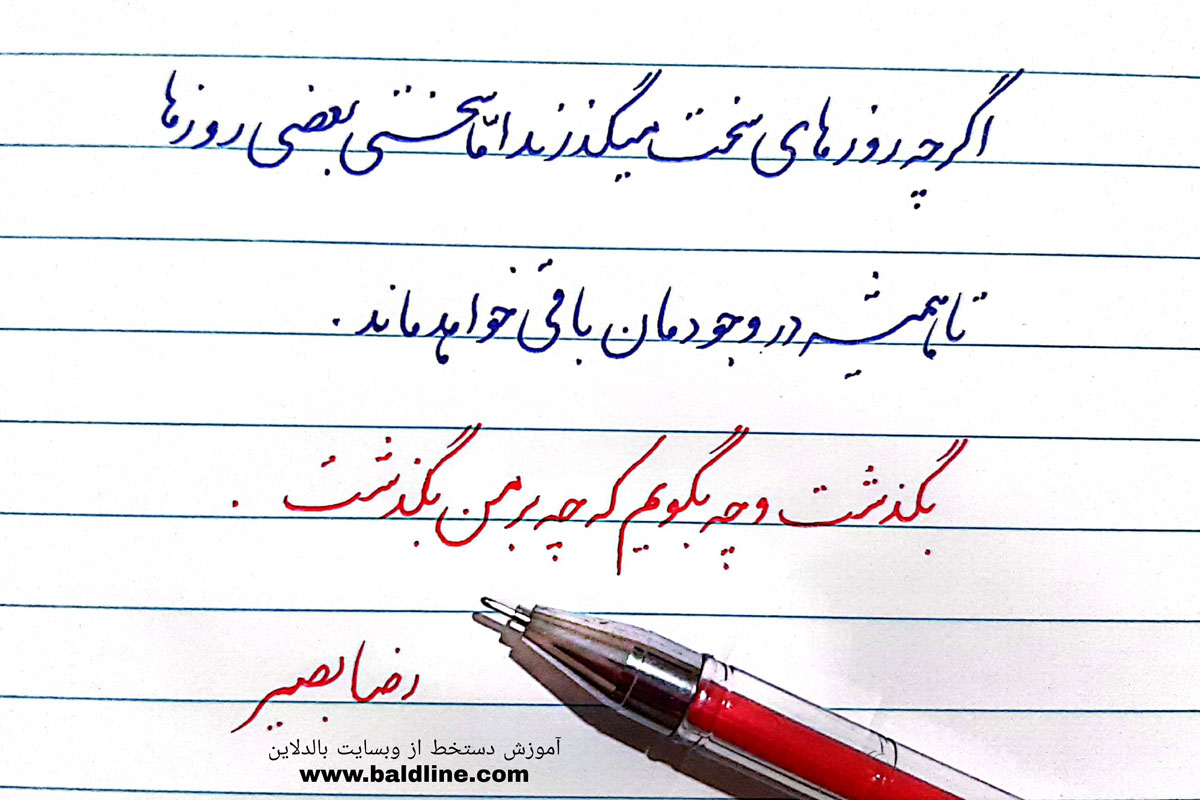 اگرچه روزهای سخت میگذرند امّا سختی بعضی روزها
تا همیشه در وجودمان باقی خواهد ماند .
بگذشت و چه بگویم که چه بر من بگذشت .
رضا بصیر
آموزش دستخط از وبسایت بالدلاین
www.baldline.com